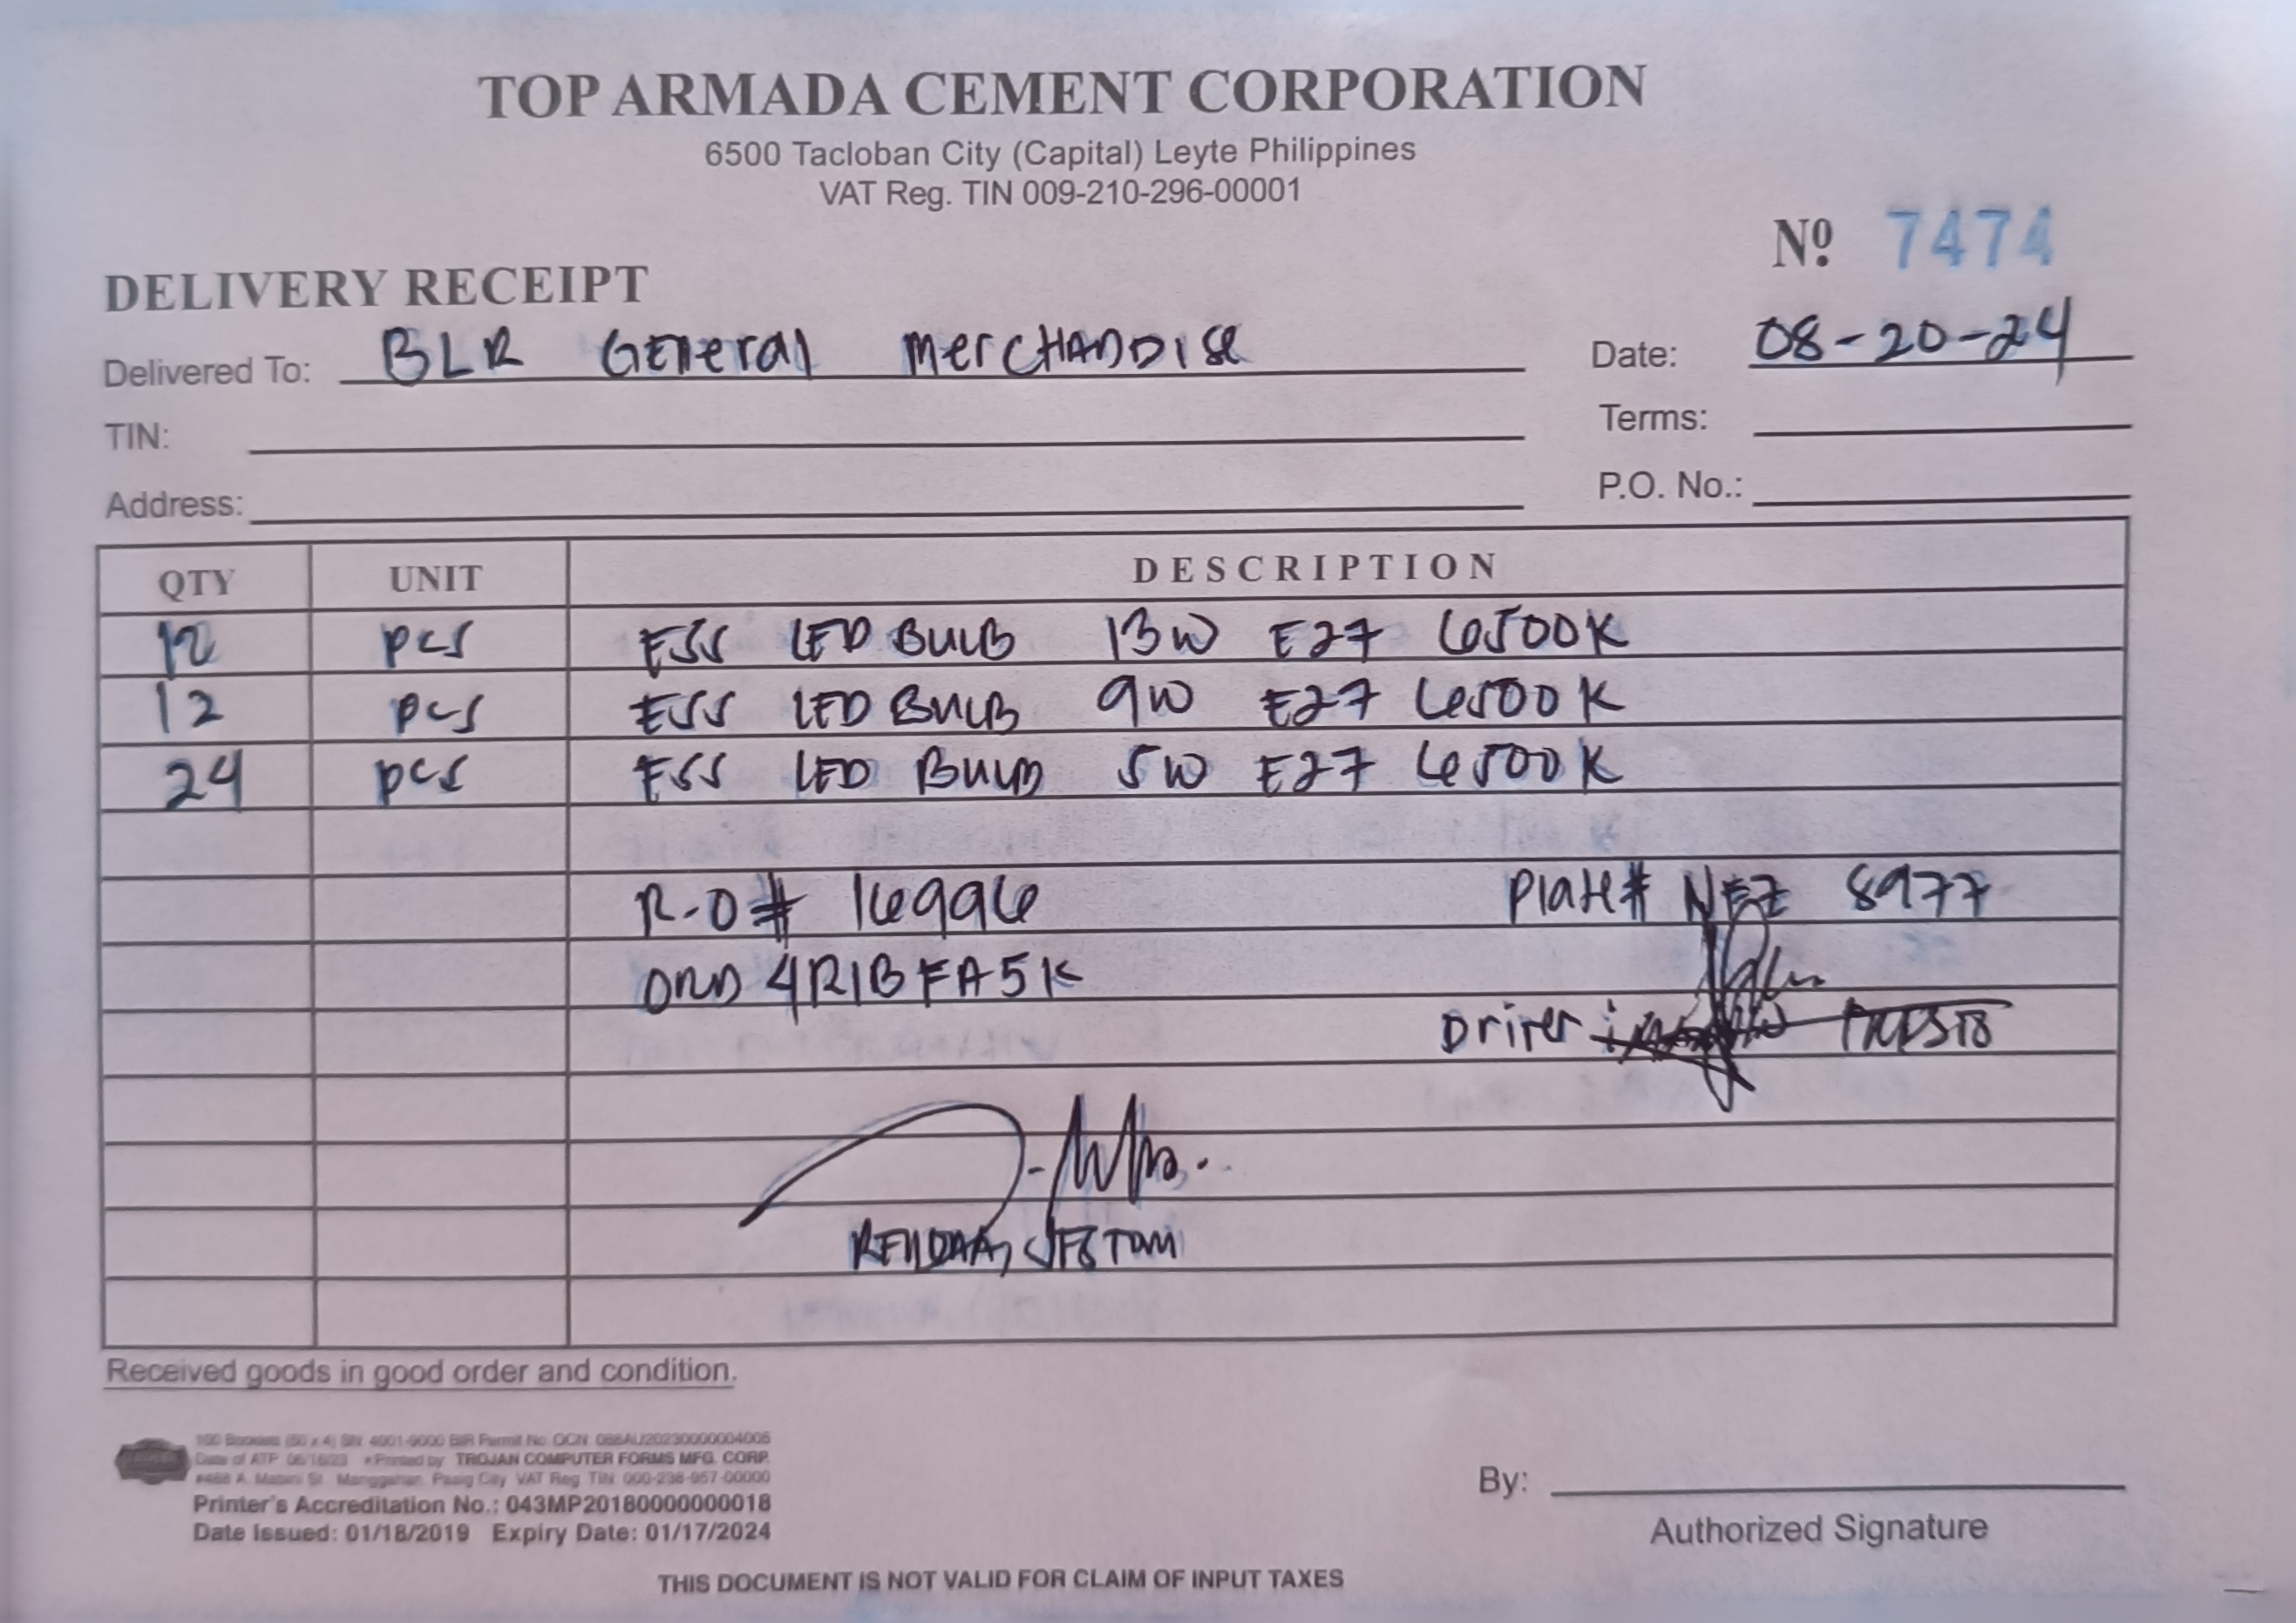 TOP ARMADA CEMENT CORPORATION
6500 Tacloban City (Capital) Leyte Philippines
VAT Reg. TIN 009-210-296-00001
Nº 7474
DELIVERY RECEIPT
Delivered To: BLR General Merchandise
Date: 08-20-24
TIN:
Terms:
Address:
P.O. No.:
QTY UNIT DESCRIPTION
12 pcs ESS LED BULB 13W E27 6500K
12 pcs ESS LED BULB 9W E27 6500K
24 pcs ESS LED BULB 5W E27 6500K
R-O# 16996 Plate# NEZ 8977
ORD 4R1BFA5K
Driver
Received goods in good order and condition.
100 Booklets (50 x 4) SN: 4001-9000 BIR Permit No. OCN: 088AU20230000004005
Date of ATP 06/16/23 *Printed by TROJAN COMPUTER FORMS MFG. CORP.
Manggahan, Pasig City VAT Reg. TIN: 000-238-957-00000
Printer's Accreditation No.: 043MP20180000000018
Date Issued: 01/18/2019 Expiry Date: 01/17/2024
By:
Authorized Signature
THIS DOCUMENT IS NOT VALID FOR CLAIM OF INPUT TAXES